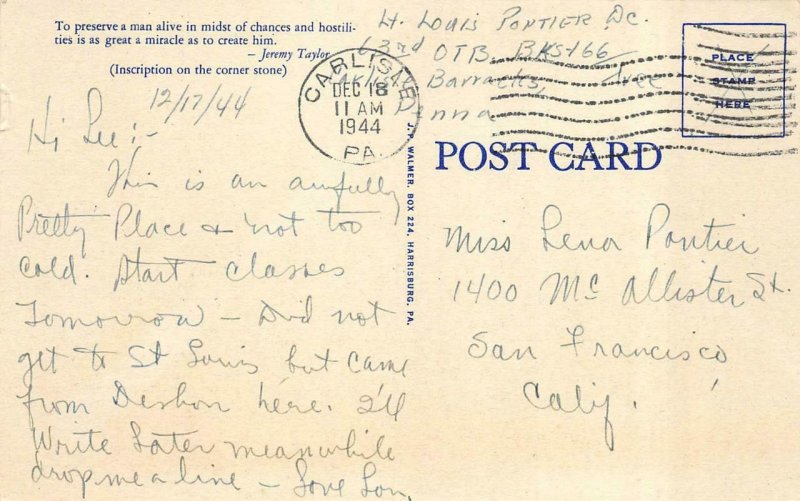 To preserve a man alive in midst of chances and hostili-
ties is as great a miracle as to create him.
— Jeremy Taylor
(Inscription on the corner stone)
12/17/44
Hi Lee :-
This is an awfully
Pretty Place & not too
cold. Start classes
Tomorrow — Did not
get to St Louis but came
from Deshon here. I'll
Write Later meanwhile
drop me a line — Love Lou.
CARLISLE
DEC 18
11 AM
1944
PA.
J. P. WALMER, BOX 224, HARRISBURG, PA.
Lt. Louis Pontier Dc.
63rd OTB, BKS-166
Barracks, Free
Penna
PLACE
STAMP
HERE
POST CARD
Miss Lena Pontier
1400 Mc Allister St.
San Francisco
Calif.